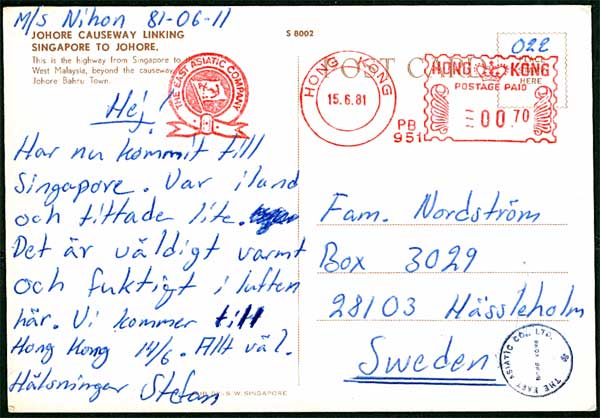 M/S Nihon 81-06-11
JOHORE CAUSEWAY LINKING
SINGAPORE TO JOHORE.
This is the highway from Singapore to
West Malaysia, beyond the causeway
Johore Bahru Town.
S 8002
THE EAST ASIATIC COMPANY
Hej!
Har nu kommit till
Singapore. Var i land
och tittade lite.
Det är väldigt varmt
och fuktigt i luften
här. Vi kommer till
Hong Kong 14/6. Allt väl.
Hälsningar Stefan
S.W. SINGAPORE
POST CARD
HONG KONG
15.6.81
PB
951
022
HONG KONG
HERE
POSTAGE PAID
00.70
Fam. Nordström
Box 3029
28103 Hässleholm
Sweden
THE EAST ASIATIC CO., LTD.